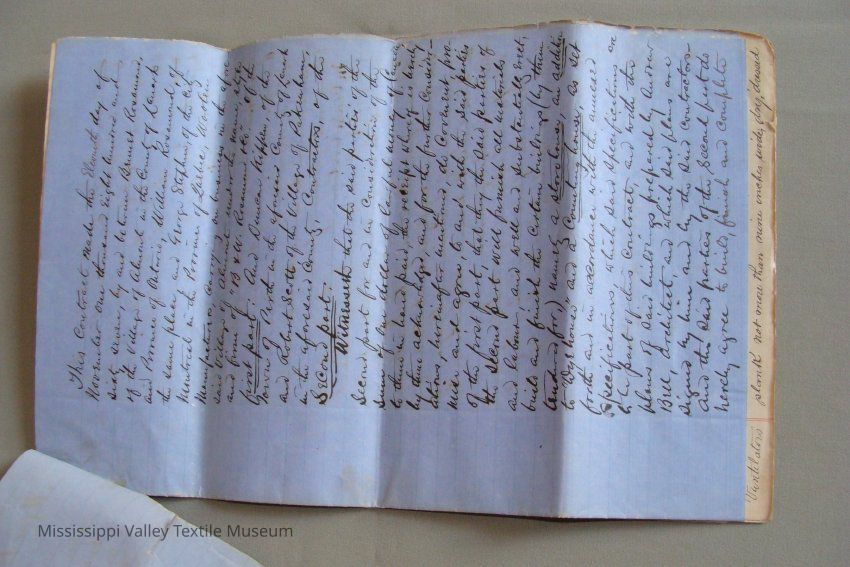 This Contract made this Eleventh day of
November One thousand eight hundred and
sixty seven, by and between Bennet Rosamond,
of the Village of Almonte in the County of Lanark
and Province of Ontario, William Rosamond of
the same place and George Stephen of the City
Montreal in the Province of Quebec, Woolen
Manufacturers, carrying on business in the afore
said Village of Almonte, under the name style
and firm of "B & W. Rosamond & Co." of the
first part, And Duncan Kippen of the
Town of Perth in the aforesaid County of Lanark
and Robert Scott of the Village of Pakenham,
in the aforesaid County, Contractors, of the
Second part.
Witnesseth that the said parties of the
Second part for and in consideration of the
sum of One dollar of lawful money of Canada,
to them in hand paid, the receipt whereof is hereby
by them acknowledged, and for the further consider-
ations, hereinafter mentioned, do Covenant pro-
mise and agree, to and with the said parties
of the first part, that they the said parties of
the second part, will furnish all materials
and labour and well and substantially erect,
build and finish the certain buildings (by them
tendered for) namely a storehouse, an addition
to "Dyehouse" and a Counting house, as set
forth and in accordance with the annexed
Specifications which said specifications are
to be part of this contract and with the
plans of said buildings prepared by Andrew
Bell architect and which said plans are
signed by him and by the said Contractors
and the said parties of the Second part do
hereby agree to build, finish and complete
Ventilators plank not more than nine inches wide, dressed
Mississippi Valley Textile Museum